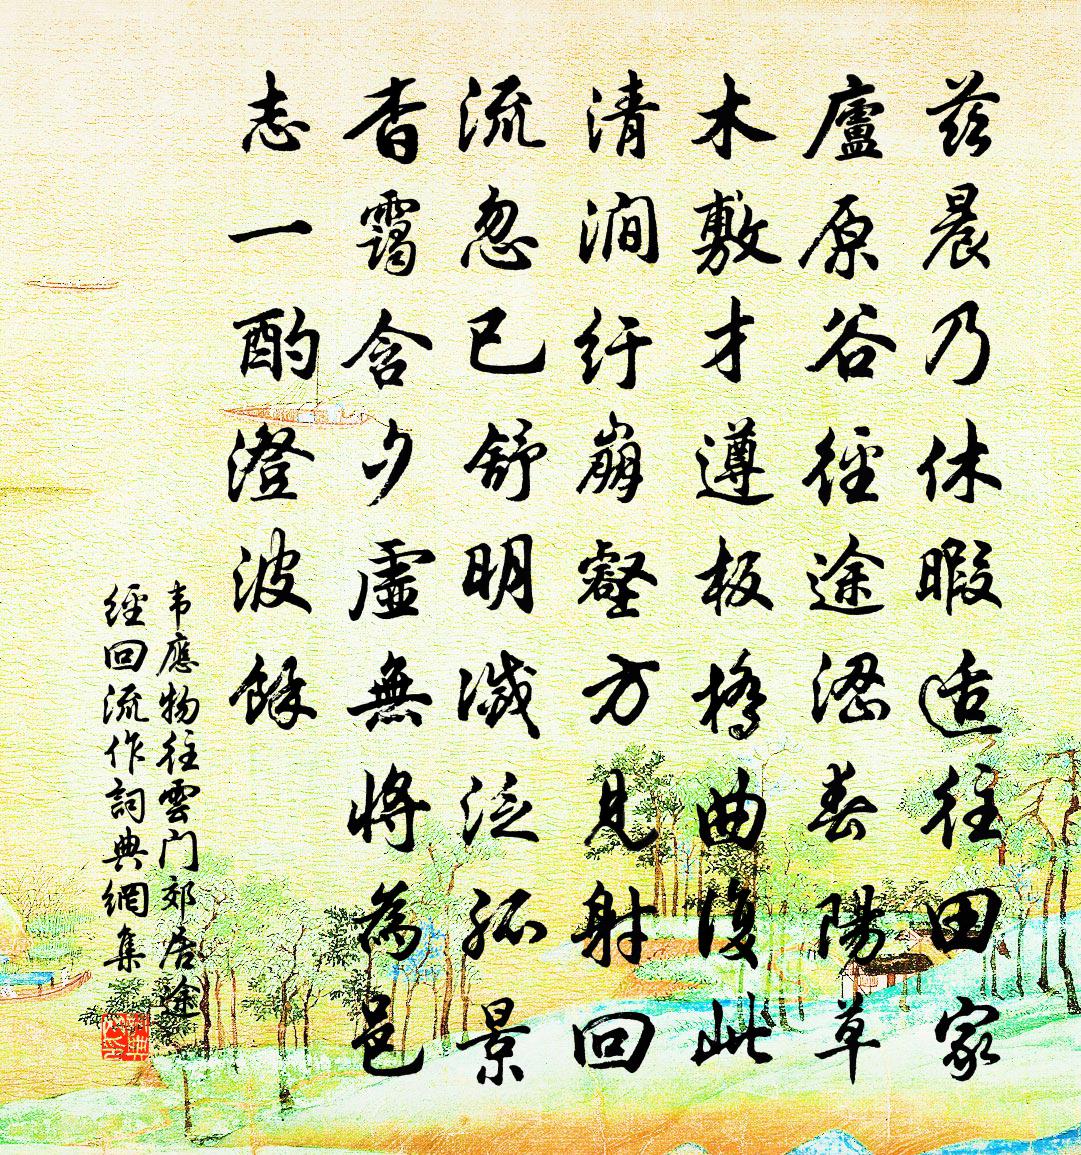 茲晨乃休暇适往田家
廬原谷徑途涩春陽草
木敷才遵板橋曲復此
清澗紆崩壑方見射回
流忽已舒明滅泛孤景
杳靄含夕虛無將為邑
志一酌澄波餘
韦應物往雲门郊居途
經回流作詞典網集